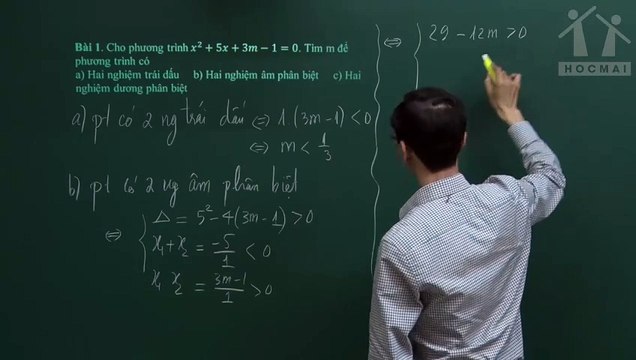 Bài 1. Cho phương trình x² + 5x + 3m − 1 = 0. Tìm m để
phương trình có
a) Hai nghiệm trái dấu b) Hai nghiệm âm phân biệt c) Hai
nghiệm dương phân biệt
a) pt có 2 ng trái dấu ⇔ 1.(3m−1) < 0
⇔ m < 1/3
b) pt có 2 ng âm phân biệt
⇔ { Δ = 5² − 4(3m−1) > 0
x₁ + x₂ = −5/1 < 0
x₁ x₂ = 3m−1/1 > 0
⇔ { 29 − 12m > 0
HOCMAI